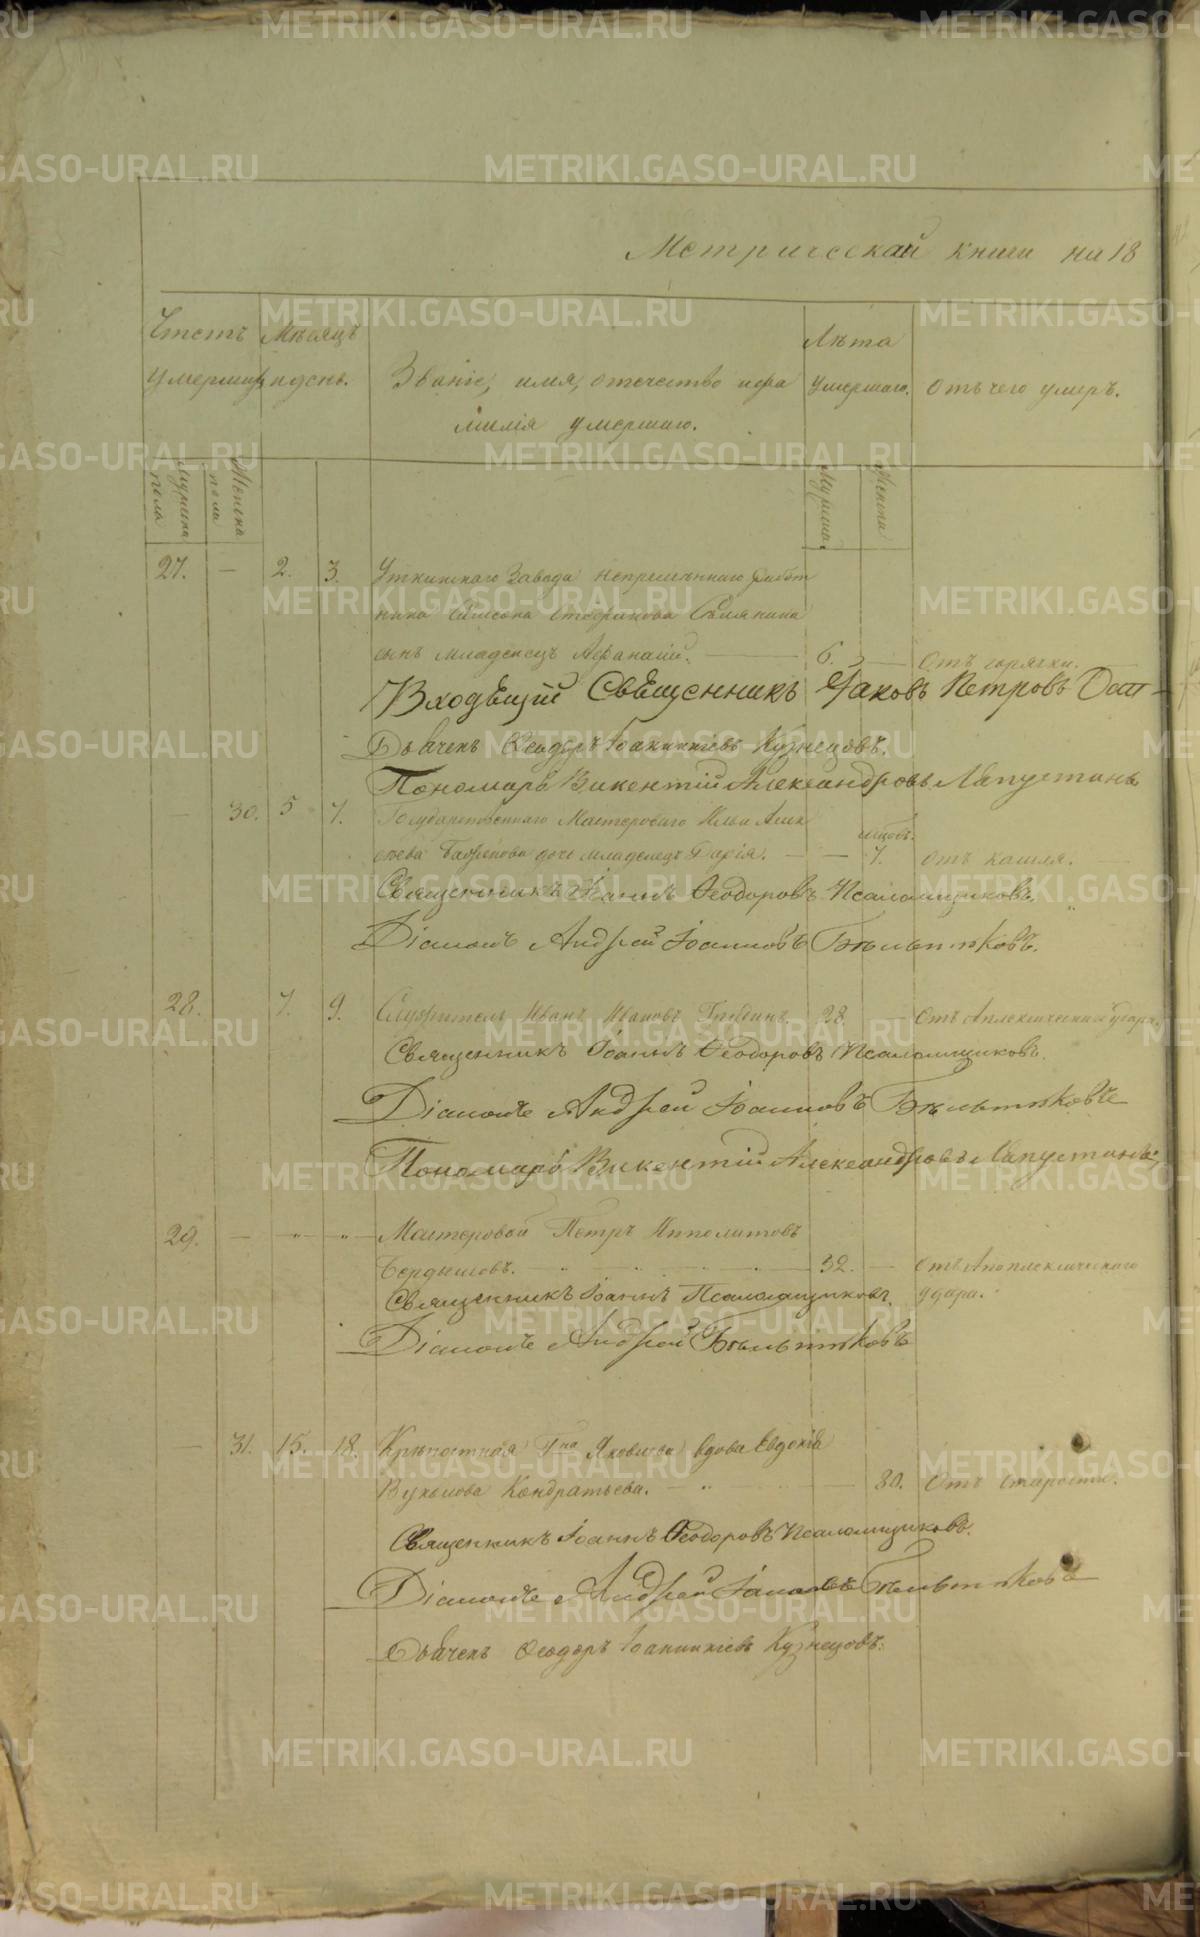 METRIKI.GASO-URAL.RU
Метрической книги на 18
Счетъ умершихъ
Мѣсяцъ и день.
Званіе, имя, отечество и фа
милія умершаго.
Лѣта умершаго.
Отъ чего умеръ.
Мужеска пола
Женска пола
Мужеска.
Женска
27. — 2. 3. Уткинскаго Завода непремѣннаго работ
ника Самсона Стефанова
сынъ младенецъ Афанасій. — 6. — Отъ горячки.
Входящій Священникъ Іаковъ Петровъ
Дьячекъ Ѳеодоръ Іоанникіевъ Кузнецовъ.
Пономарь Викентій Александровъ Лапустинъ
— 30. 5 7. Государственнаго Мастероваго Ильи Алек
сѣева дочь младенецъ Дарія. — — 7. мѣсцовъ. отъ кашля.
Священникъ Іоаннъ Ѳеодоровъ Псаломщиковъ.
Діаконъ Андрей Іоанновъ Бѣльтюковъ.
28. 7. 9. Служитель Иванъ Ивановъ 28. — Отъ Аплексическаго удара.
Священникъ Іоаннъ Ѳеодоровъ Псаломщиковъ.
Діаконъ Андрей Іоанновъ Бѣльтюковъ
Пономарь Викентій Александровъ Лапустинъ
29. — " " — Мастеровой Петръ Ипполитовъ
Бердышовъ. — 32. — отъ Апоплексическаго
удара.
Священникъ Іоаннъ Псаломщиковъ.
Діаконъ Андрей Бѣльтюковъ
— 31. 15. 18. Крѣпостная Гна Яковлева вдова Евдокія
Вуколова Кондратьева. — " — 80. Отъ старости.
Священникъ Іоаннъ Ѳеодоровъ Псаломщиковъ.
Діаконъ Андрей Іоановъ Бѣльтюковъ
Дьячекъ Ѳеодоръ Іоанникіевъ Кузнецовъ.